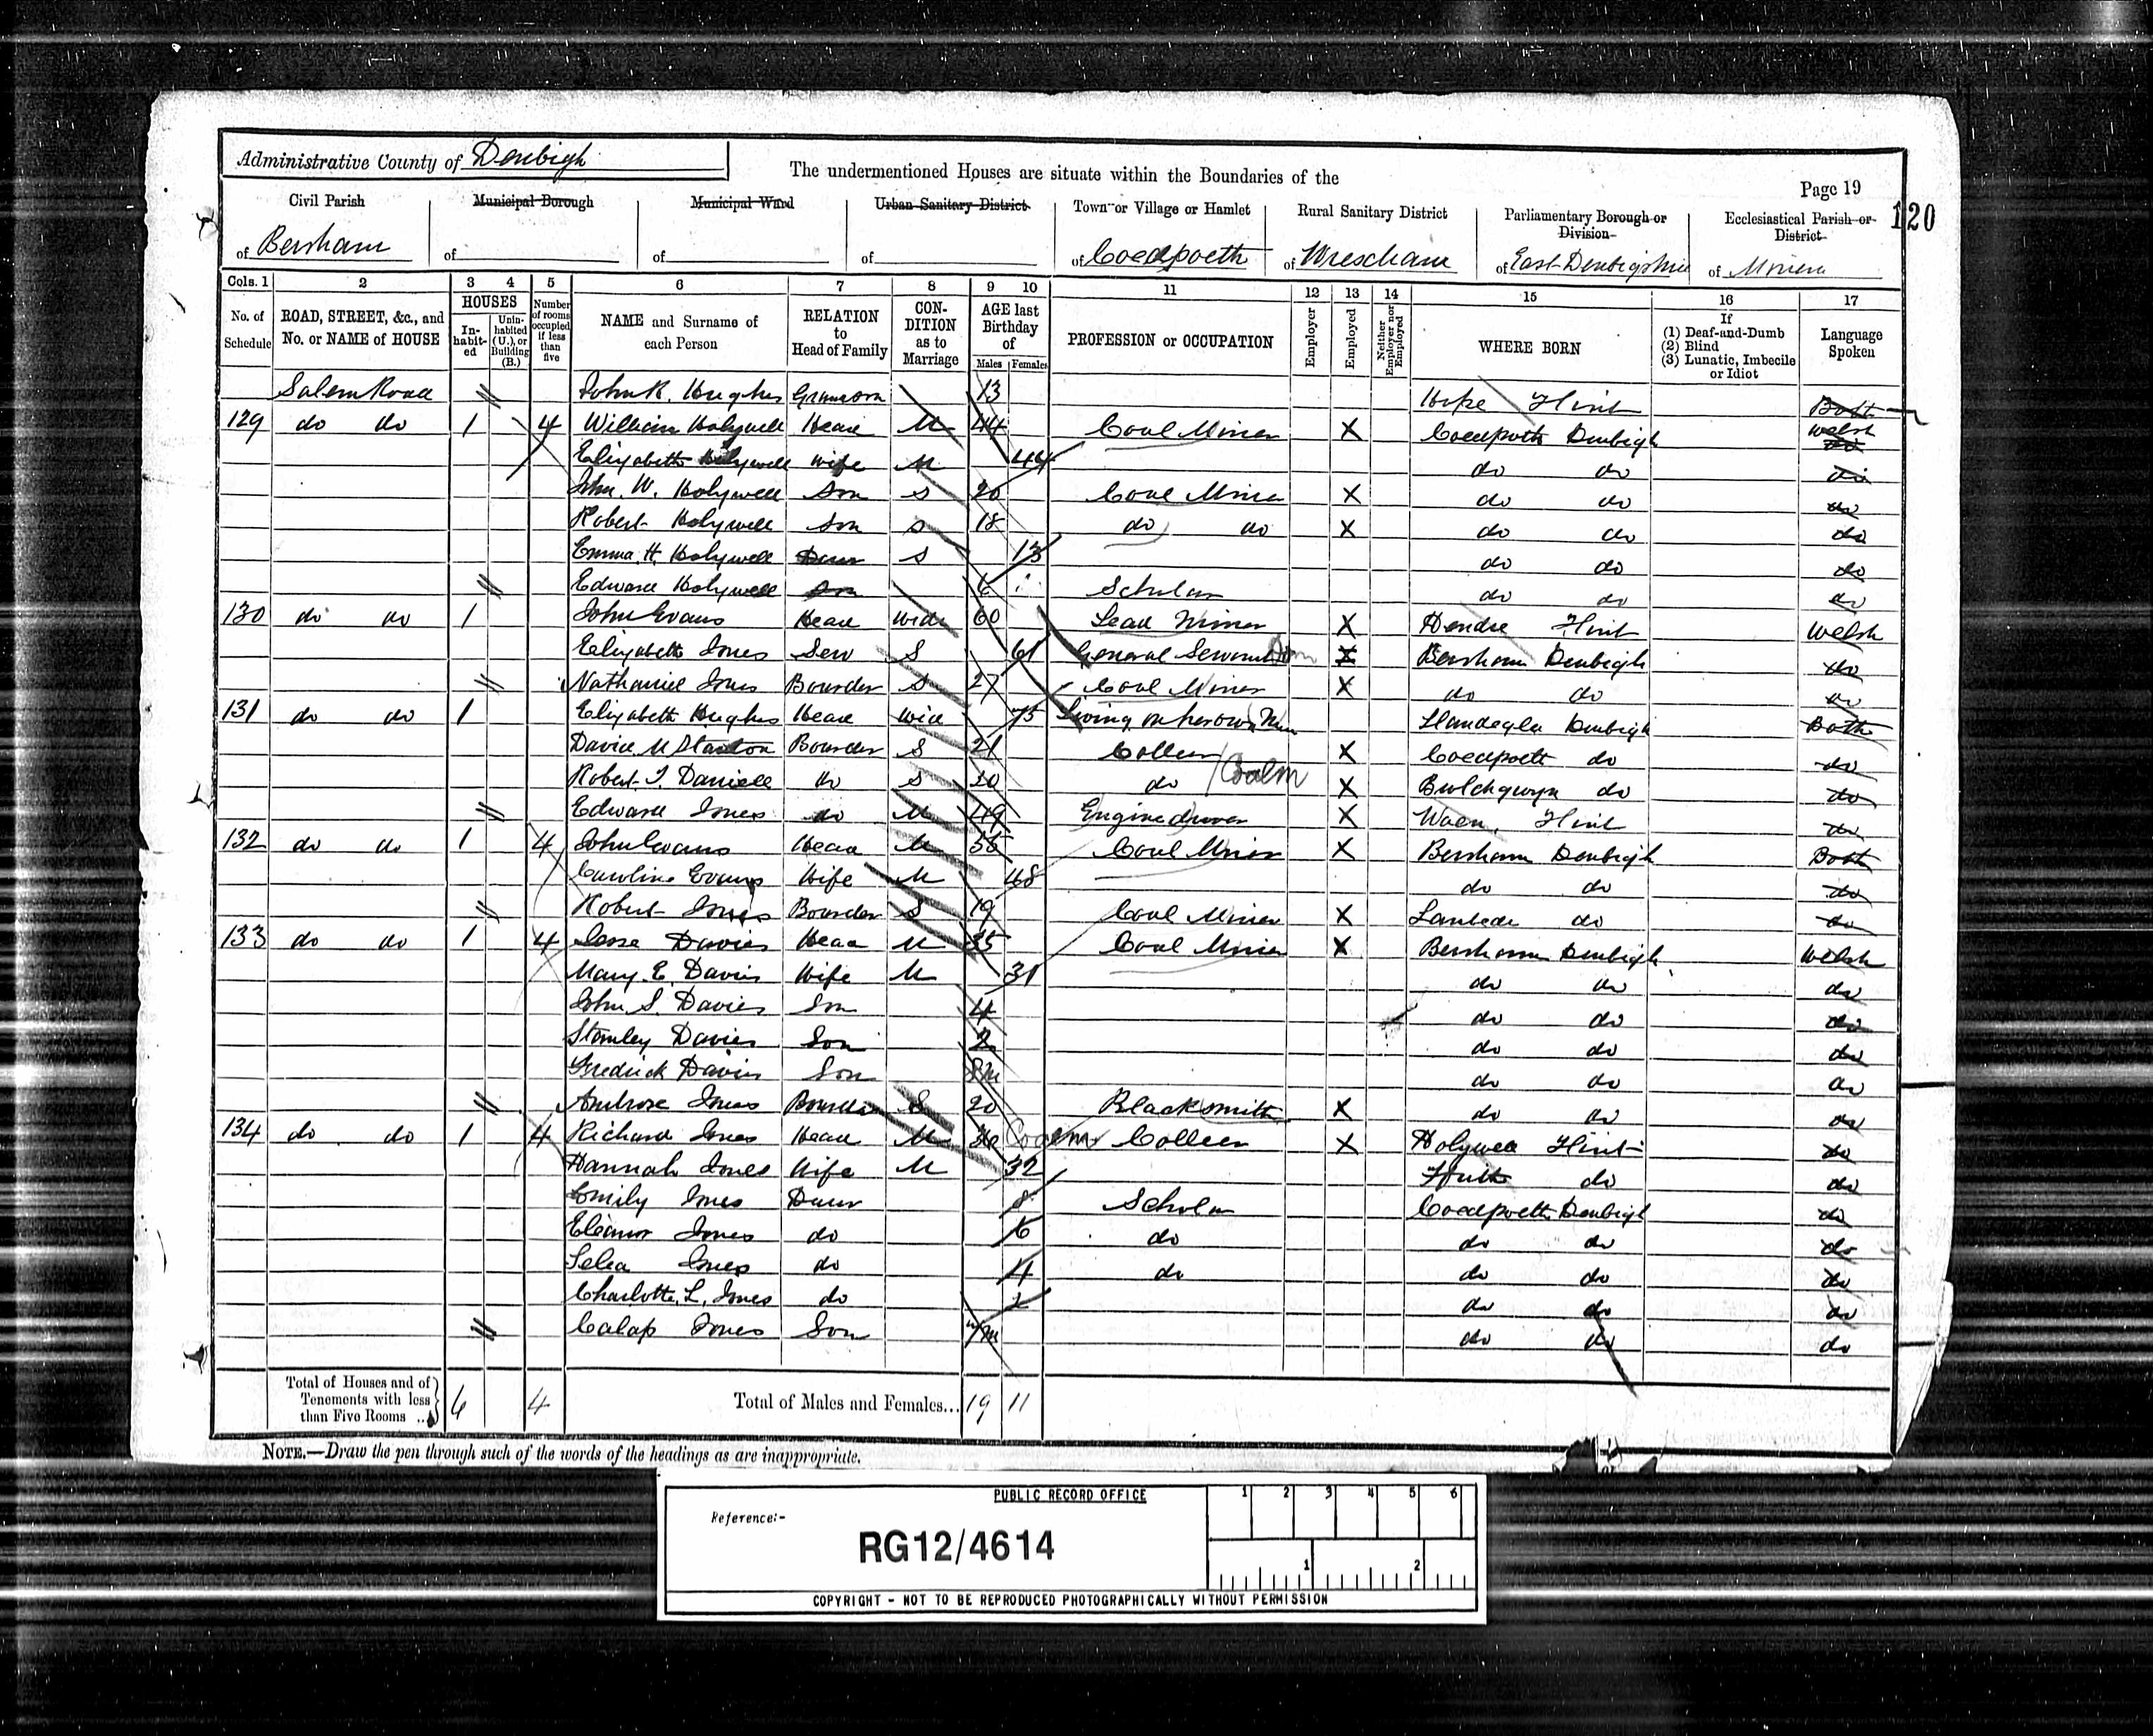 Administrative County of Denbigh
The undermentioned Houses are situate within the Boundaries of the
Page 19
120
Civil Parish of Bersham
Municipal Borough of
Municipal Ward of
Urban Sanitary District of
Town or Village or Hamlet of Coedpoeth
Rural Sanitary District of Wrexham
Parliamentary Borough or Division of East Denbigshire
Ecclesiastical Parish or District of Minera
Cols. 1 2 3 4 5 6 7 8 9 10 11 12 13 14 15 16 17
No. of Schedule
ROAD, STREET, &c., and No. or NAME of HOUSE
HOUSES
In-habit-ed
Unin-habited (U.), or Building (B.)
Number of rooms occupied if less than five
NAME and Surname of each Person
RELATION to Head of Family
CON-DITION as to Marriage
AGE last Birthday of
Males Females
PROFESSION or OCCUPATION
Employer
Employed
Neither Employer nor Employed
WHERE BORN
If (1) Deaf-and-Dumb (2) Blind (3) Lunatic, Imbecile or Idiot
Language Spoken
Salem Road John R. Hughes Grandson 13 Hope Flint Both
129 do do 1 4 William Holywell Head M 44 Coal Miner X Coedpoeth Denbigh Welsh do
Elizabeth Holywell Wife M 44 do do do
John. W. Holywell Son S 20 Coal Miner X do do do
Robert Holywell Son S 18 do do X do do do
Emma. H. Holywell Daur S 13 do do do
Edward Holywell Son 6 Scholar do do do
130 do do 1 John Evans Head Widr 60 Lead Miner X Hendre Flint Welsh
Elizabeth Jones Serv S 61 General Servant Dom X Bersham Denbigh do
Nathaniel Jones Boarder S 27 Coal Miner X do do do
131 do do 1 Elizabeth Hughes Head Wid 75 Living on her own Llandegla Denbigh Both
David M Boarder S 21 Collier X Coedpoeth do do
Robert. T. Daniell do S 20 do Coalm X Bwlchgwyn do do
Edward Jones do M 49 Engine driver X Waen, Flint do
132 do do 1 4 John Evans Head M 56 Coal Miner X Bersham Denbigh Both
Caroline Evans Wife M 48 do do do
Robert Jones Boarder S 19 Coal Miner X do do
133 do do 1 4 Jesse Davies Head M 35 Coal Miner X Bersham Denbigh Welsh
Mary. E. Davies Wife M 31 do do do
John. S. Davies Son 4 do do do
Stanley Davies Son 2 do do do
Fredrick Davies Son 8m do do do
Ambrose Jones Boarder S 20 Blacksmith X do do do
134 do do 1 4 Richard Jones Head M 36 Coalm Collier X Holywell Flint do
Hannah Jones Wife M 32 do do
Emily Jones Daur 8 Scholar Coedpoeth Denbigh do
Eleanor Jones do 6 do do do do
Selea Jones do 4 do do do do
Charlotte. L. Jones do 2 do do do
Calap Jones Son 7m do do do
Total of Houses and of Tenements with less than Five Rooms 6 4
Total of Males and Females... 19 11
NOTE.—Draw the pen through such of the words of the headings as are inappropriate.
PUBLIC RECORD OFFICE
Reference:-
RG12/4614
1 2 3 4 5 6
1 2
COPYRIGHT - NOT TO BE REPRODUCED PHOTOGRAPHICALLY WITHOUT PERMISSION